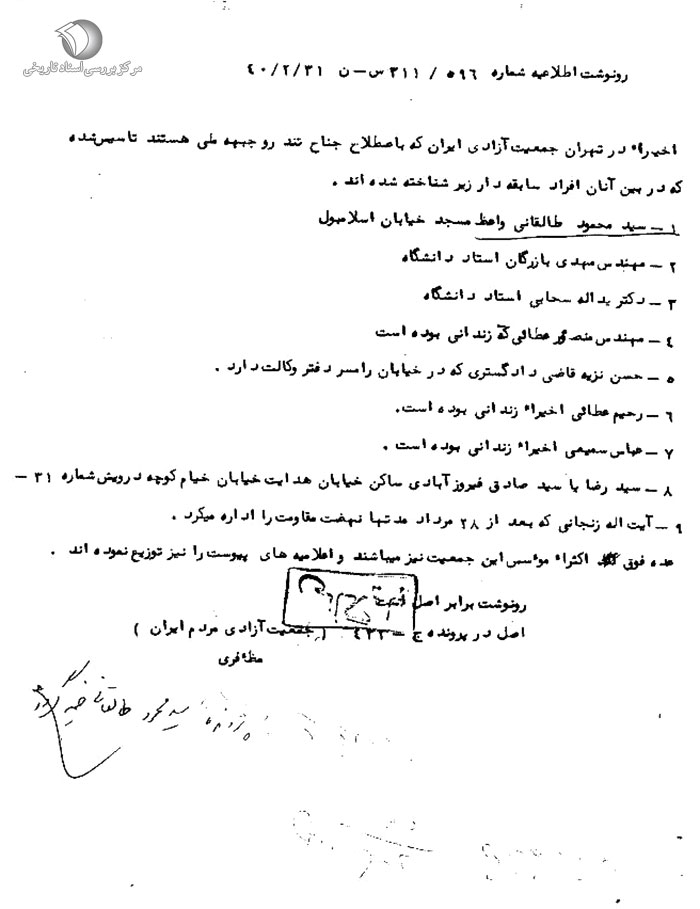 مرکز بررسی اسناد تاریخی
رونوشت اطلاعیه شماره ۵۹۶ / ۳۱۱ س – ن ۴۰/۲/۳۱
اخیراً در تهران جمعیت آزادی ایران که باصطلاح جناح تند رو جبهه ملی هستند تاسیس شده
که در بین آنان افراد سابقه دار زیر شناخته شده اند .
۱ – سید محمود طالقانی واعظ مسجد خیابان اسلامبول
۲ – مهندس مهدی بازرگان استاد دانشگاه
۳ – دکتر یداله سحابی استاد دانشگاه
۴ – مهندس منصور عطائی که زندانی بوده است
۵ – حسن نزیه قاضی دادگستری که در خیابان رامسر دفتر وکالت دارد .
۶ – رحیم عطائی اخیراً زندانی بوده است.
۷ – عباس سمیعی اخیراً زندانی بوده است .
۸ – سید رضا یا سید صادق فیروزآبادی ساکن خیابان هدایت خیابان خیام کوچه درویش شماره ۳۱ –
۹ – آیت اله زنجانی که بعد از ۲۸ مرداد مدتها نهضت مقاومت را اداره میکرد .
عده فوق اکثراً مؤسس این جمعیت نیز میباشند و اعلامیه های پیوست را نیز توزیع نموده اند .
رونوشت برابر اصل است
اصل در پرونده ج – ۴۳۲ ( جمعیت آزادی مردم ایران )
سید محمود طالقانی